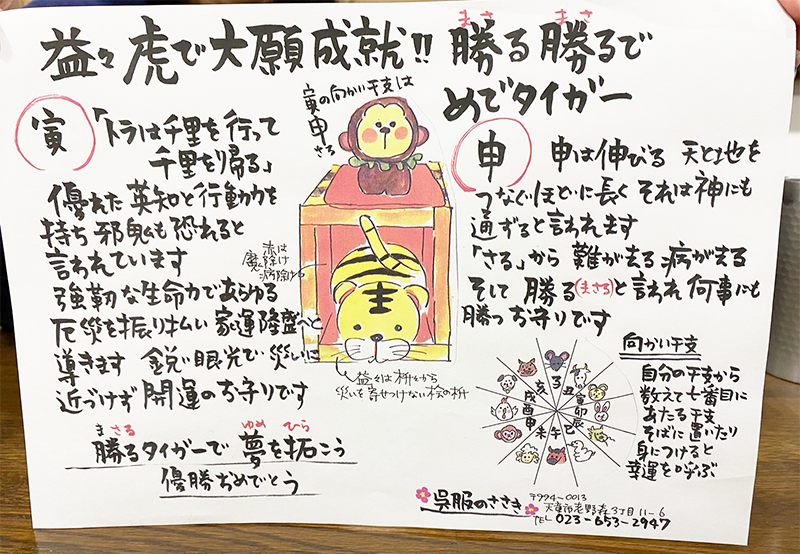 益々虎で大願成就!! 勝る勝るで
まさ まさ
めでタイガー
寅の向かい干支は
申
さる
寅
「トラは千里を行って
千里を帰る」
優れた英知と行動力を
持ち 邪鬼も恐れると
言われています
強靭な生命力であらゆる
厄災を振り払い 家運隆盛へと
導きます 鋭い眼光で災いに
近づけず開運のお守りです
赤は
魔除け
病除け
益々は枡から
災いを寄せつけない桧の枡
申
申は伸びる 天と地を
つなぐほどに長く それは神にも
通ずると言われます
「さる」から 難が去る 病が去る
そして 勝る(まさる)と言われ 何事にも
勝つお守りです
向かい干支
自分の干支から
数えて七番目に
あたる干支
そばに置いたり
身につけると
幸運を呼ぶ
子 丑 寅 卯 辰 巳 午 未 申 酉 戌 亥
まさる ゆめ ひら
勝るタイガーで 夢を拓こう
優勝おめでとう
呉服のささき
〒994-0013
天童市老野森3丁目11-6
TEL 023-653-2947